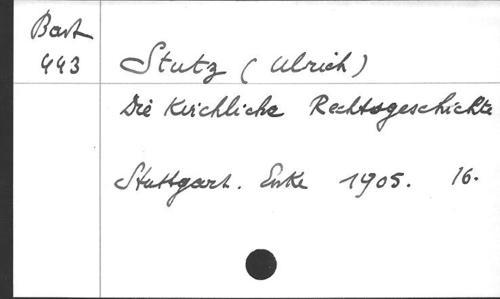 Bart
443
Stutz (Ulrich)
Die Kirchliche Rechtsgeschichte
Stuttgart. Enke 1905. 16.